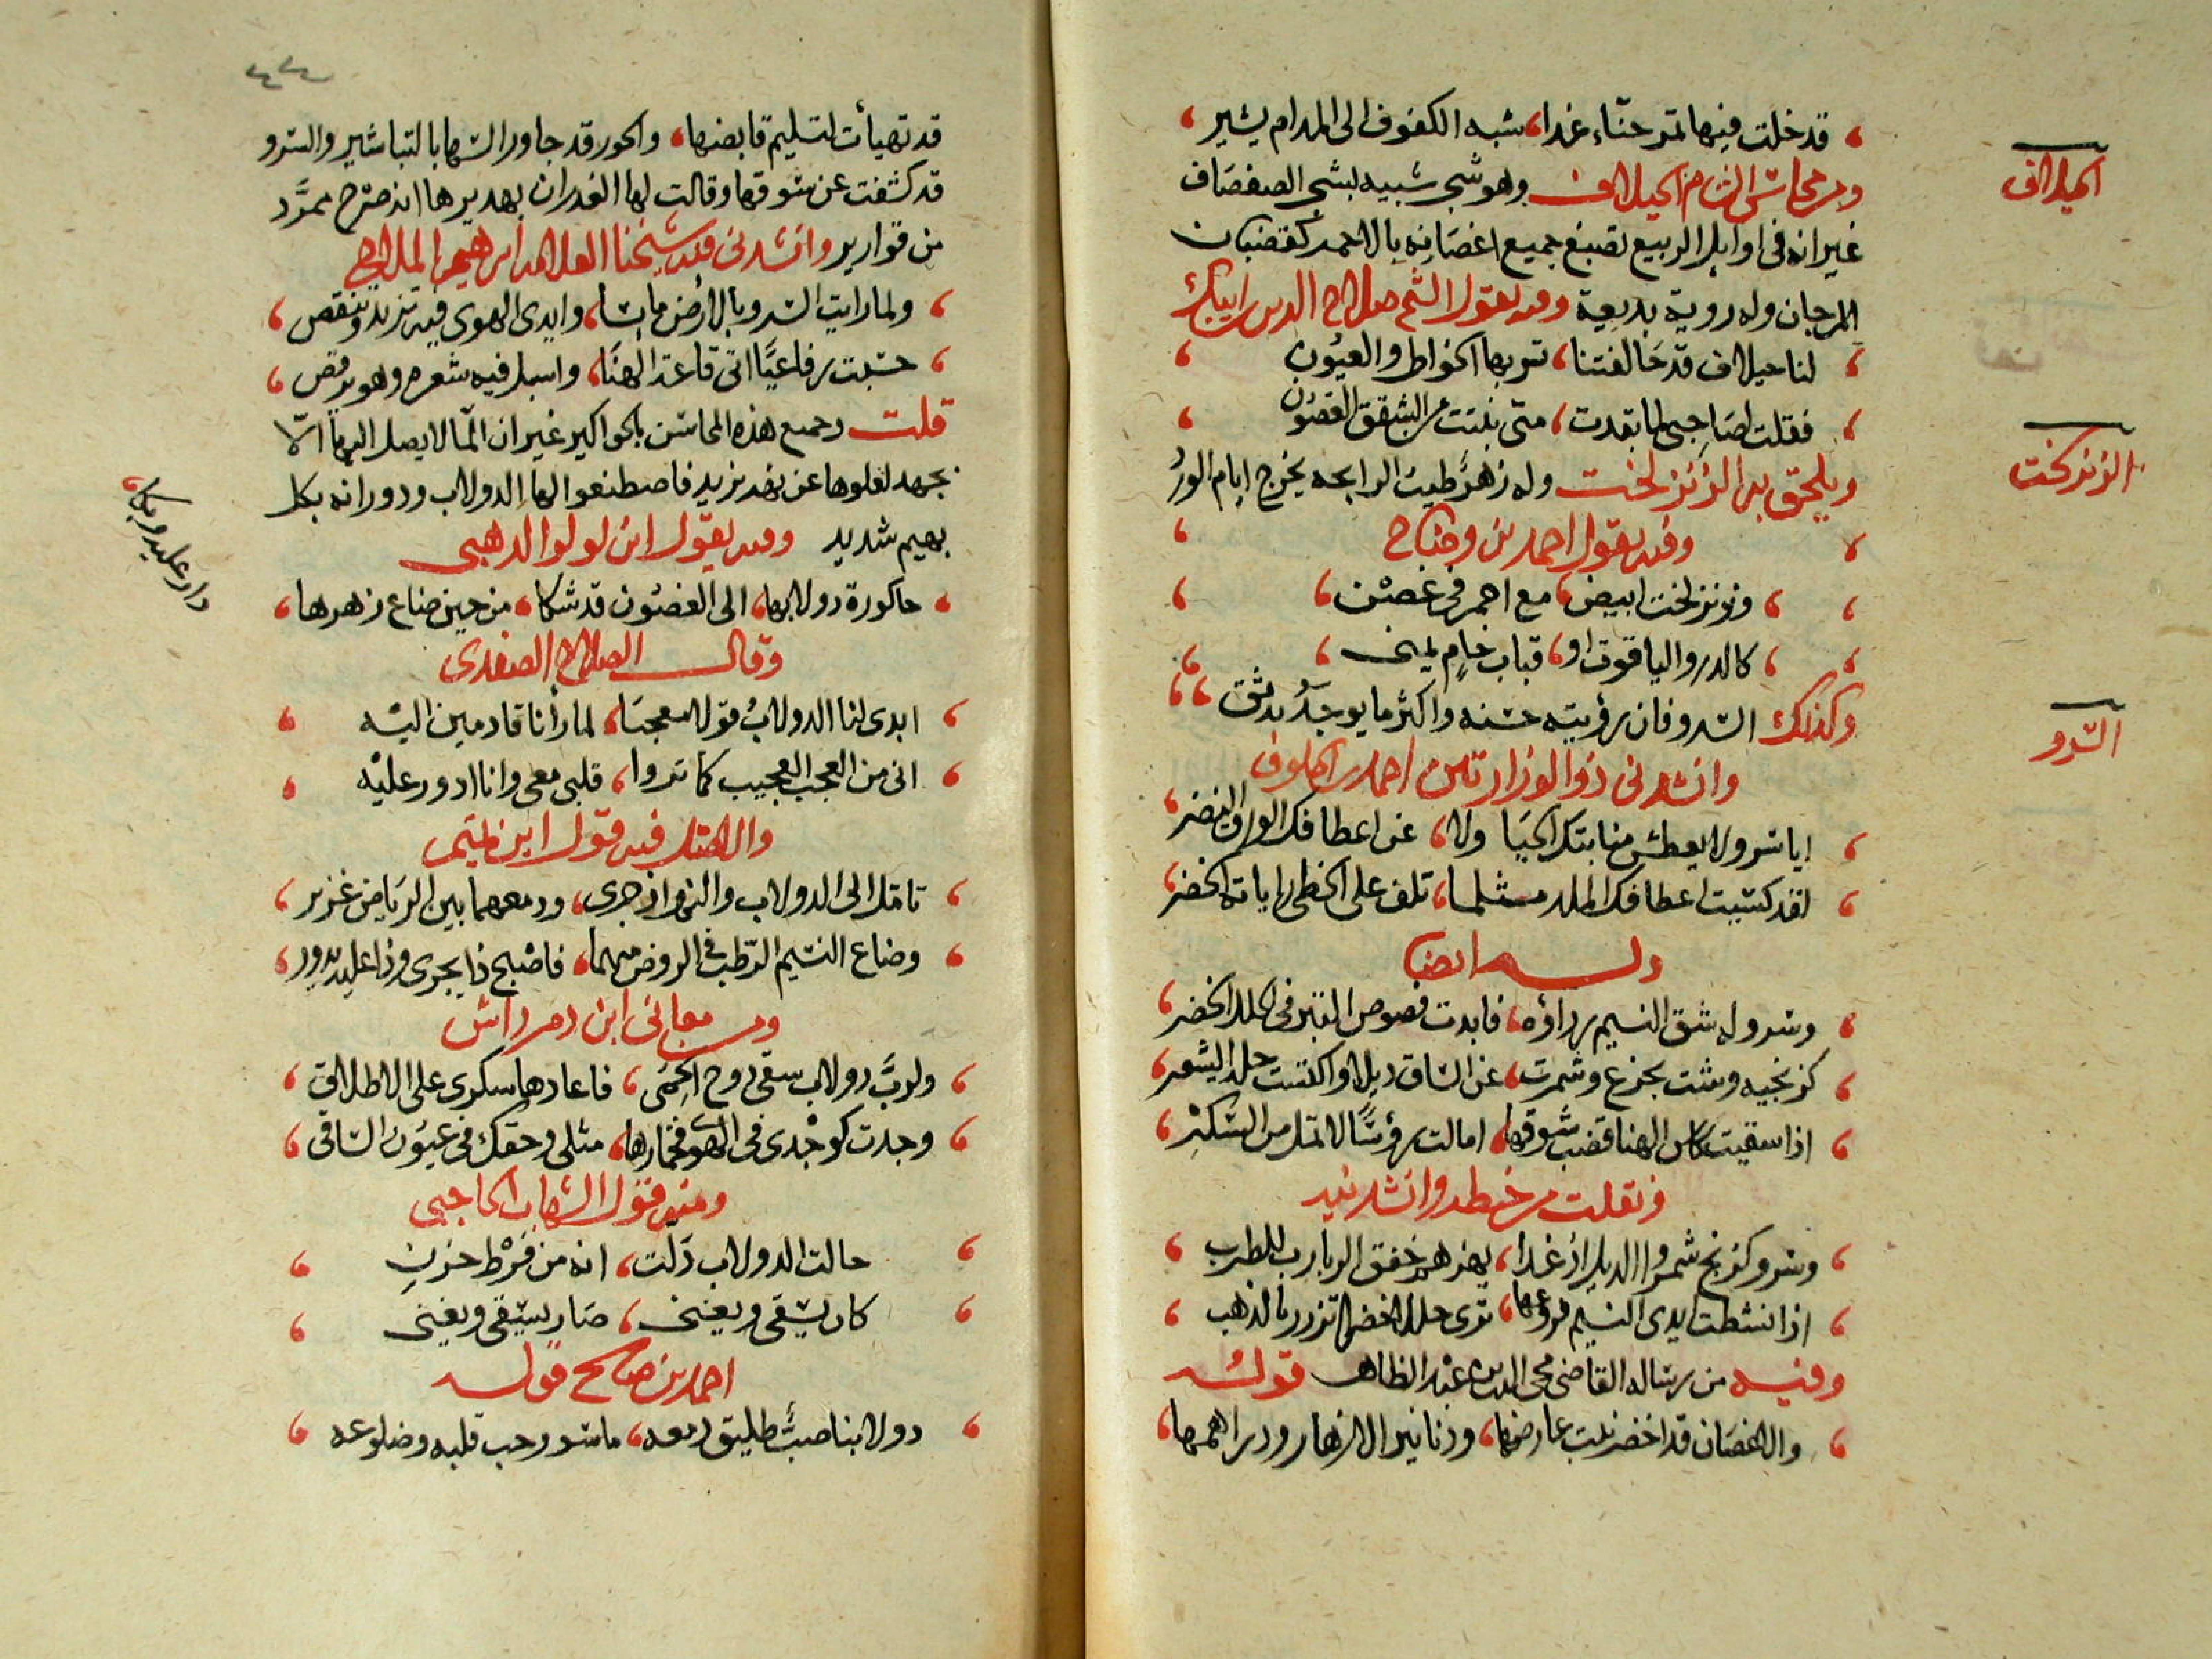 قد خلت فيها تمرحناء غدا، شبه الكفوف الى المدام يشير
ومن محاسن الشام الحيلاف وهو شجر شبيه بشجر الصفصاف
الحيلاف
غير انه فى اوايل الربيع تصبغ جميع اغصانه بالاحمر كقضبان
المرجان وله روية بديعة وفيه يقول الشيخ صلاح الدين ايبك
لنا حيلاف قد خالفتنا، تسر بها الخواطر والعيون
فقلت لصاحبى لما تبدت، متى نبتت من الشفق الغصون
ويلحق به الزنزلخت وله زهر طيب الرايحه يخرج ايام الورد
الزنزلخت
وفيه يقول احمد بن وضاح
وزنزلخت ابيض، مع احمر فى غصن
كالدر والياقوت او، قباب خام يمنى
وكذلك السرو فان رؤيته حسنه واكثر ما يوجد بدمشق
السرو
وانشدنى ذو الوزارتين احمد بن الخلوف
ايا سرو لا يعطش منابتك الحيا ولا، عن اعطافك الورق النضر
لقد كسيت اعطافك الملد مثلما، تلف على الخطى راياته الخضر
وله ايضا
وسرو له شق النسيم رداؤه، فابدت فصوص التبر فى الحلل الخضر
كزنجيه وشت بجزع وشمرت، عن الساق ذيلا واكتست حلل الشعر
اذا سقيت كاس الهنا قضب سوقها، امالت رؤسا لا تمل من السكر
ونقلت من خطه وانشدنيه
وسرو كزنج شمروا الذيل اذ غدا، يهزهم خفق الربارب للطرب
اذا نشطت ايدى النسيم فروعها، ترى حللا خضرا تزرر بالذهب
وفيه من رساله القاضى محى الدين عبد الظاهر قوله
والاغصان قد اخضر نبت عارضها، ودنانير الازهار ودراهمها
قد تهيأت لتسليم قابضها، والحور قد جاور السها بالتباشير والسرو
قد كشفت عن سوقها وقالت لها الغدران بهديرها انه صرح ممرد
من قوارير وانشدنى فيه شيخنا العلامه ابراهيم الملاح
ولما رايت السرو بالارض مايسا، وايدى الهوى فيه تزيد وتنقص
حسبت رفاعيا اتى قاعة الهنا، واسبل فيه شعره وهو يرقص
قلت وجميع هذه المحاسن بالحواكير غير ان الما لا يصل اليها الا
بجهد لعلوها عن نهر يزيد فاصطنعوا لها الدولاب ودورانه بكل
بهيم شديد وفيه يقول ابن لولو الذهبى
حاكورة دولابها، الى الغصون قد شكا، من حين ضاع زهرها،
دار عليه وبكا
وقال الصلاح الصفدى
ابدى لنا الدولاب قولا معجبا، لما رأنا قادمين اليه
انى من العجب العجيب كما تروا، قلبى معى وانا ادور عليه
والاصل فيه قول ابن تميم
تامل الى الدولاب والنهر اذ جرى، ودمعهما بين الرياض غزير
وضاع النسيم الرطب فى الروض منهما، فاصبح ذا يجرى وذا عليه يدور
ومن معانى ابن دمرداش
ولرب دولاب سقى دوح الحمى، فاعادها سكرى على الاطلاق
وجدت كوجدى فى الهوى فخمارها، مثلى وحقك فى عيون الساقى
ومنه قول الشهاب الحاجبى
حالت الدولاب دلت، انه من فرط حزن
كان يسقى ويغنى، صار يسقى ويغنى
احمد بن صالح قوله
دولابنا صب طليق دمعه، ماسور حب قلبه وضلوعه